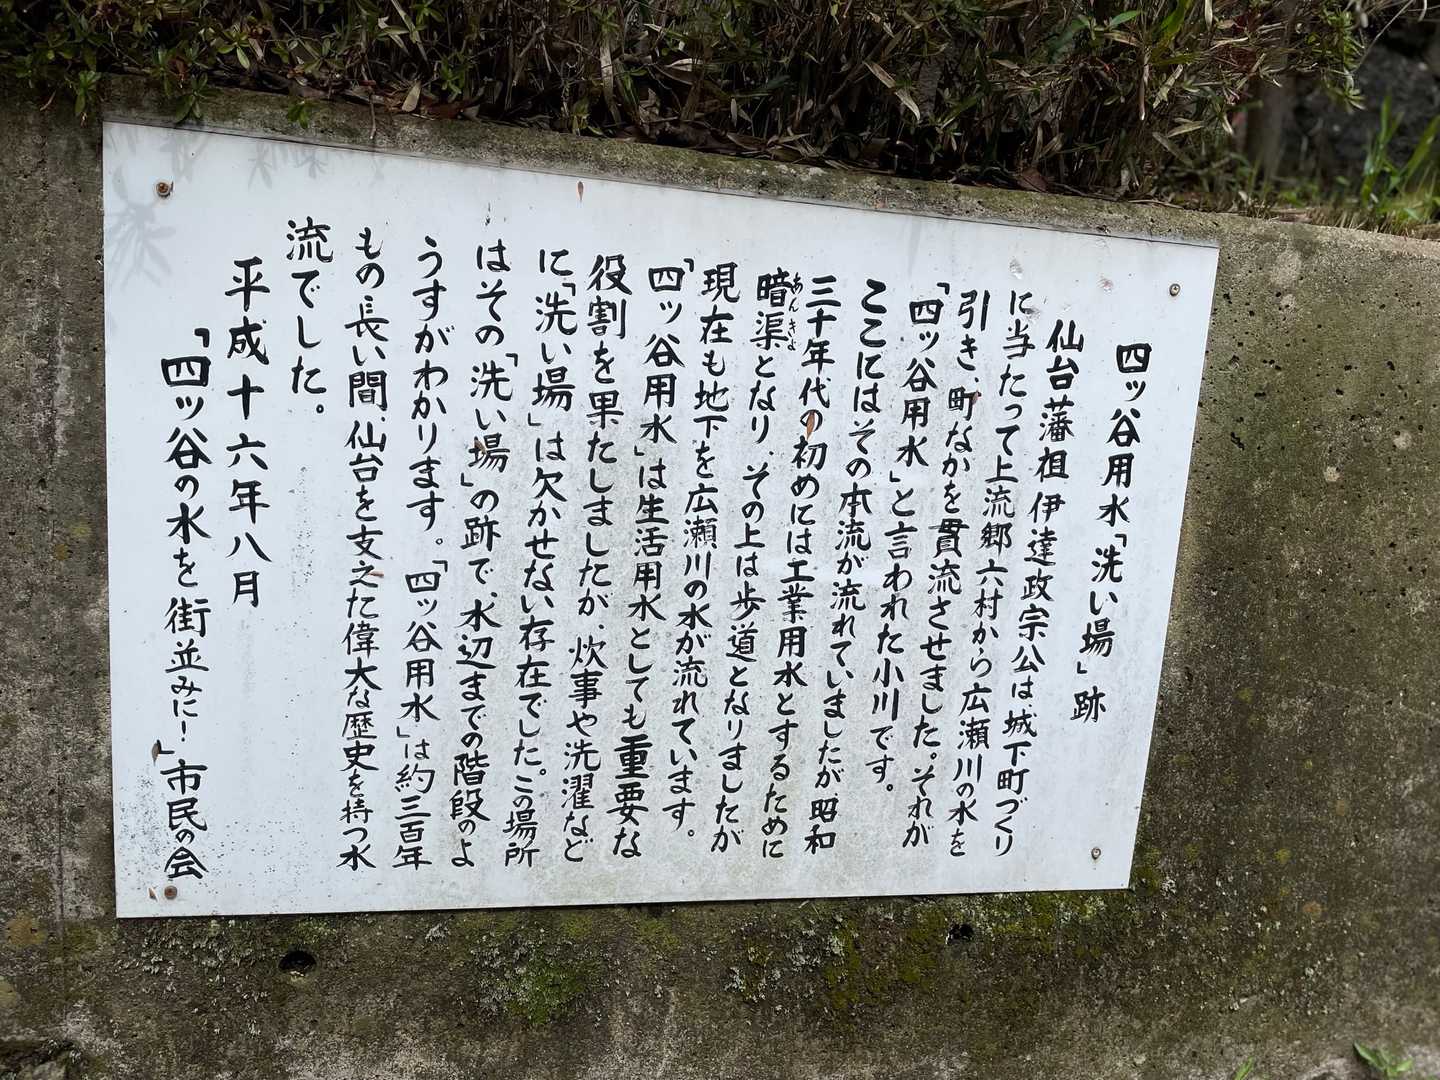 四ッ谷用水「洗い場」跡
仙台藩祖 伊達政宗公は、城下町づくり
に当たって上流郷六村から広瀬川の水を
引き、町なかを貫流させました。それが
「四ッ谷用水」と言われた小川です。
ここにはその本流が流れていましたが、昭和
三十年代の初めには工業用水とするために
暗渠となり、その上は歩道となりましたが
あんきょ
現在も地下を広瀬川の水が流れています。
「四ッ谷用水」は生活用水としても重要な
役割を果たしましたが、炊事や洗濯など
に「洗い場」は欠かせない存在でした。この場所
はその「洗い場」の跡で、水辺までの階段のよ
うすがわかります。「四ッ谷用水」は約三百年
もの長い間、仙台を支えた偉大な歴史を持つ水
流でした。
平成十六年八月
「四ッ谷の水を街並みに！」市民の会